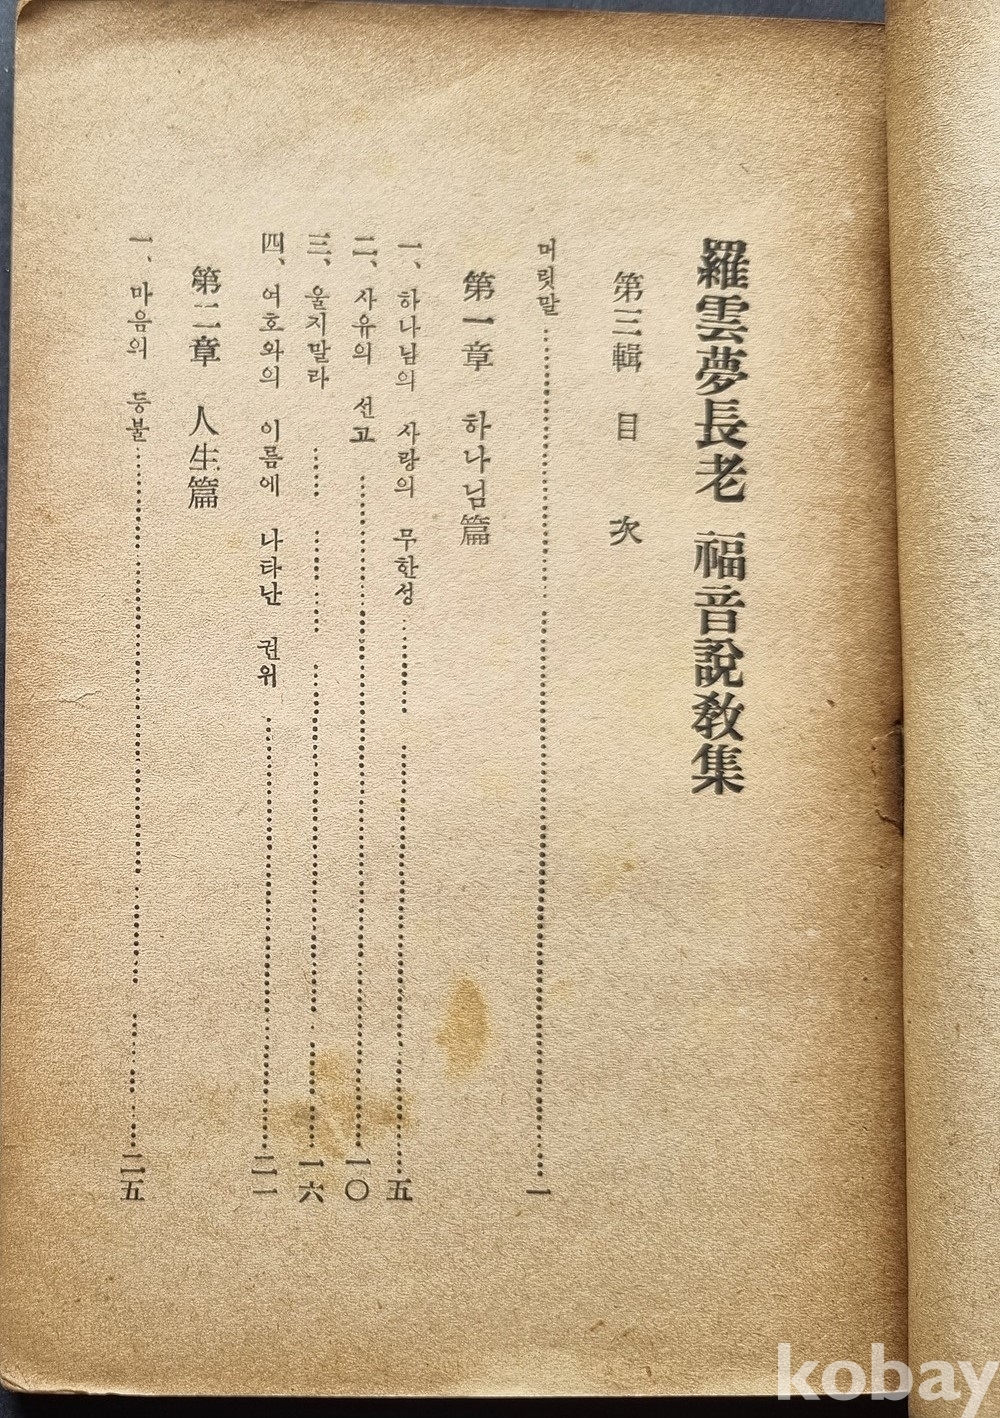 羅雲夢長老 福音說敎集
第三輯 目 次
머릿말 一
第一章 하나님篇
一、하나님의 사랑의 무한성 五
二、사유의 선고 一〇
三、울지말라 一六
四、여호와의 이름에 나타난 권위 二一
第二章 人生篇
一、마음의 등불 二五
kobay